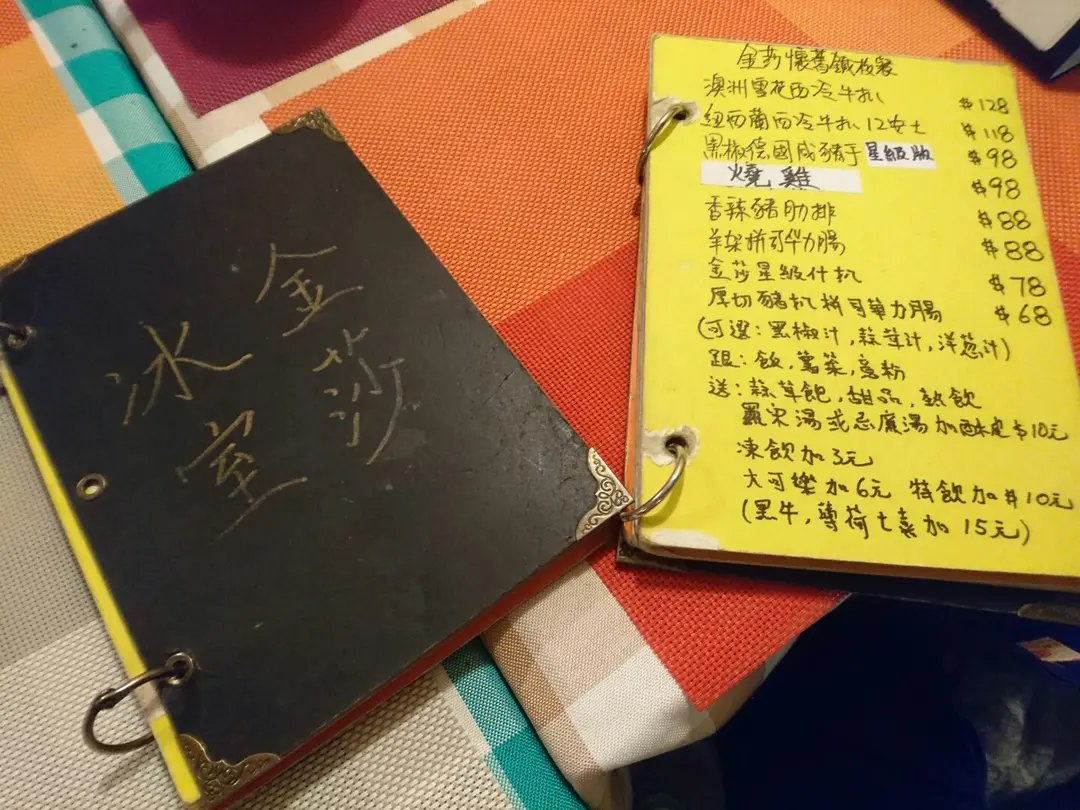 金莎
冰室
金莎懷舊鐵板餐
澳洲雪花西冷牛扒 $128
紐西蘭西冷牛扒 12安士 $118
黑椒德國咸豬手 星級版 $98
燒雞 $98
香辣豬肋排 $88
羊架拼可華力腸 $88
金莎星級什扒 $78
厚切豬扒拼司華力腸 $68
(可選:黑椒汁,蒜茸汁,洋葱汁)
跟:飯,薯菜,意粉
送:蒜茸飽,甜品,熱飲
羅宋湯或忌廉湯加酥皮$10元
凍飲加3元
大可樂加6元 特飲加$10元
(黑牛,薄荷七喜加 15元)